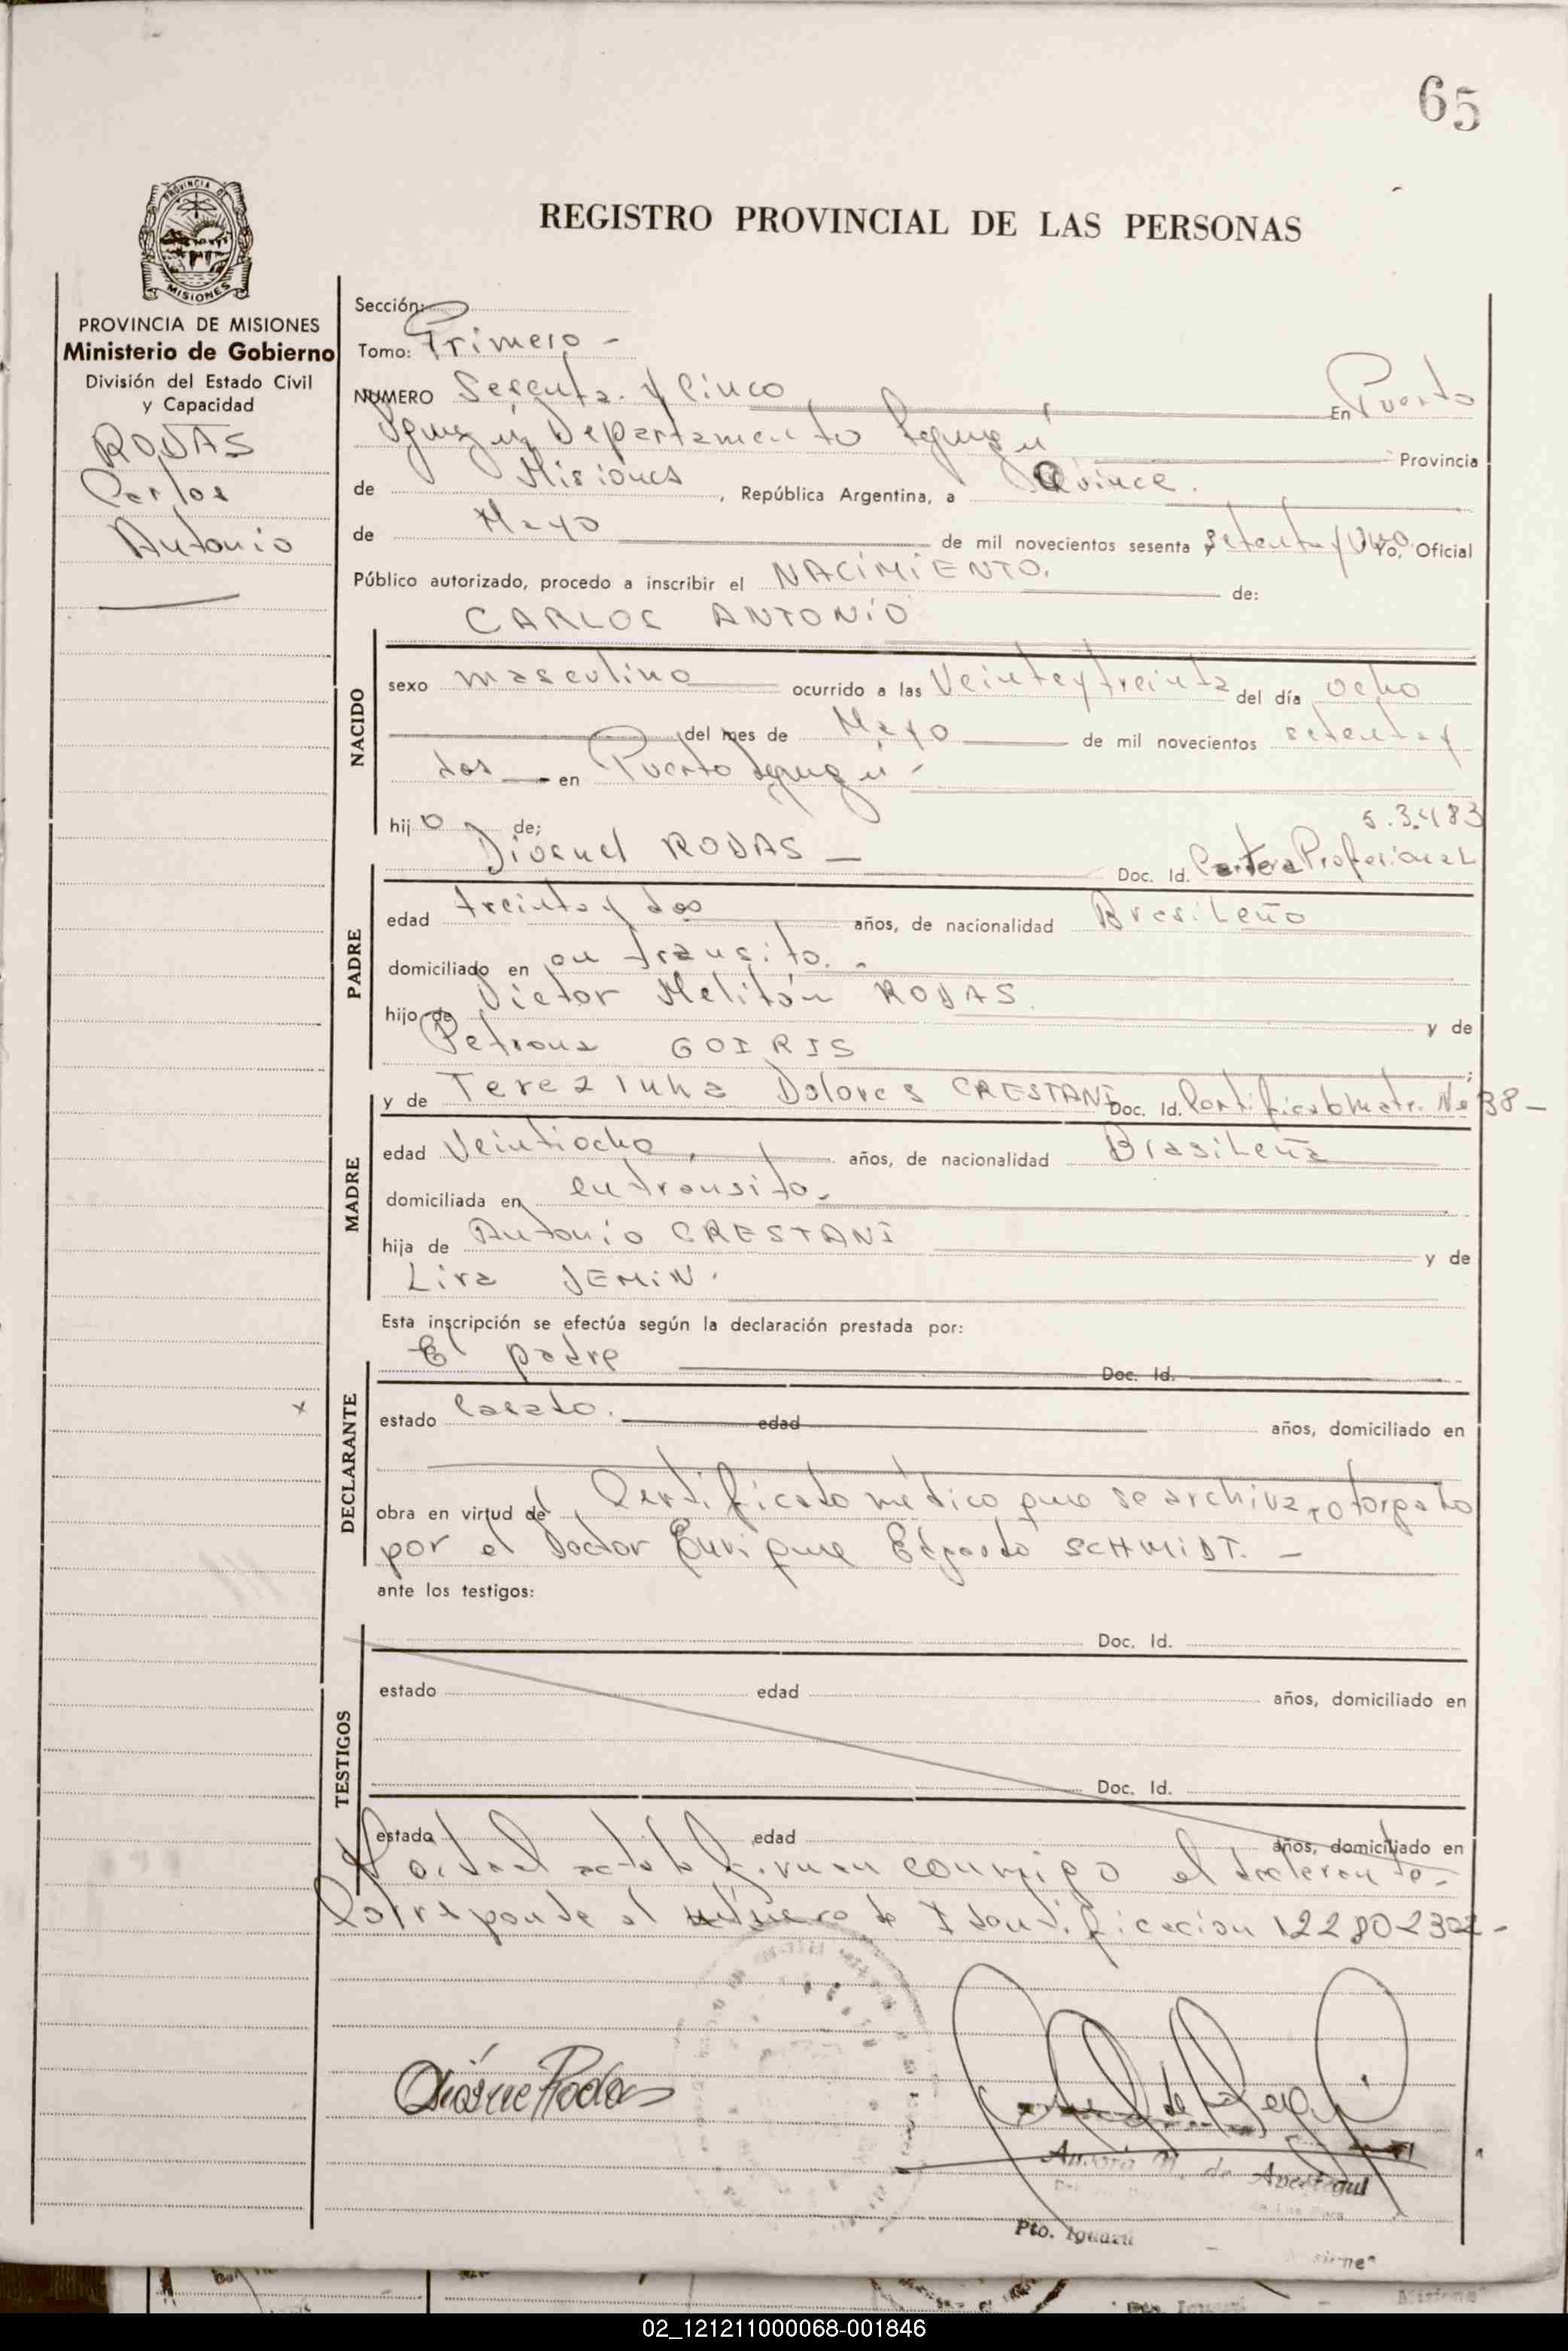 65
PROVINCIA DE
MISIONES
REGISTRO PROVINCIAL DE LAS PERSONAS
PROVINCIA DE MISIONES
Ministerio de Gobierno
División del Estado Civil
y Capacidad
RODAS
Carlos
Antonio
Sección:
Tomo: Primero -
NUMERO Sesenta y Cinco En Puerto
Iguazú, Departamento Iguazú Provincia
de Misiones, República Argentina, a Quince.
de Mayo de mil novecientos sesenta y setenta y Yo, Oficial
Público autorizado, procedo a inscribir el NACIMIENTO. de:
CARLOS ANTONIO
NACIDO
sexo masculino ocurrido a las Veinte y treinta del día ocho
del mes de Mayo de mil novecientos setenta y
dos en Puerto Iguazú -
hijo de:
5.3.483
RODAS — Doc. Id. Profesional
PADRE
edad treinta y dos años, de nacionalidad Brasileño
domiciliado en en transito. -
hijo de Victor Melitón RODAS. y de
Petrona GOIRIS
y de Terezinha Dolores CRESTANI Doc. Id. Certificado Matr. No 38 -
MADRE
edad Veintiocho, años, de nacionalidad Brasileña
domiciliada en en transito.
hija de Antonio CRESTANI y de
Lira JEMIN.
Esta inscripción se efectúa según la declaración prestada por:
El padre Doc. Id.
DECLARANTE
estado Casado. edad años, domiciliado en
obra en virtud de Certificado médico que se archiva, otorgado
por el Doctor Enrique Edgardo SCHMIDT. -
ante los testigos:
Doc. Id.
TESTIGOS
estado edad años, domiciliado en
Doc. Id.
estado edad años, domiciliado en
Leida el acta la firman conmigo el declarante.-
Corresponde al número de Identificación 12280230 -
Rodas
M. de Anestegui
Pto. Iguazú
02_121211000068-001846